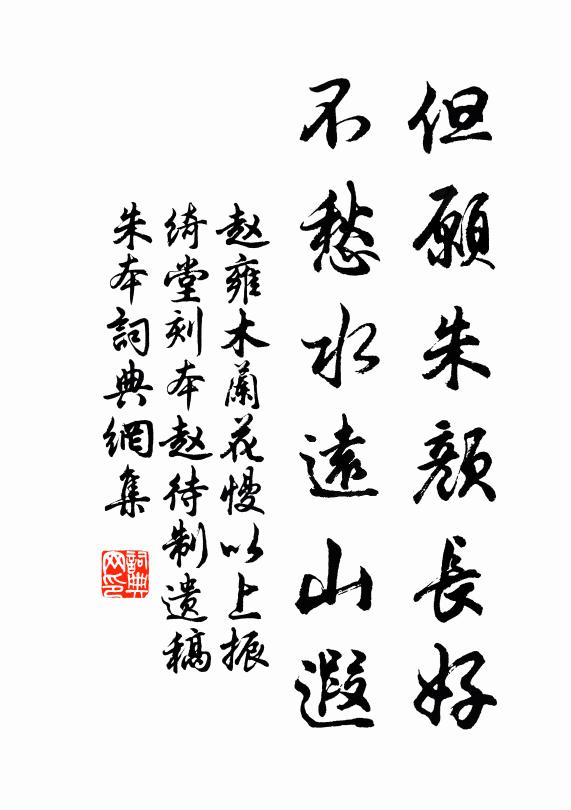 但願朱顏長好
不愁水遠山遐
赵雍木蘭花慢以上振
绮堂刻本赵待制遗稿
朱本詞典網集
詞典网印